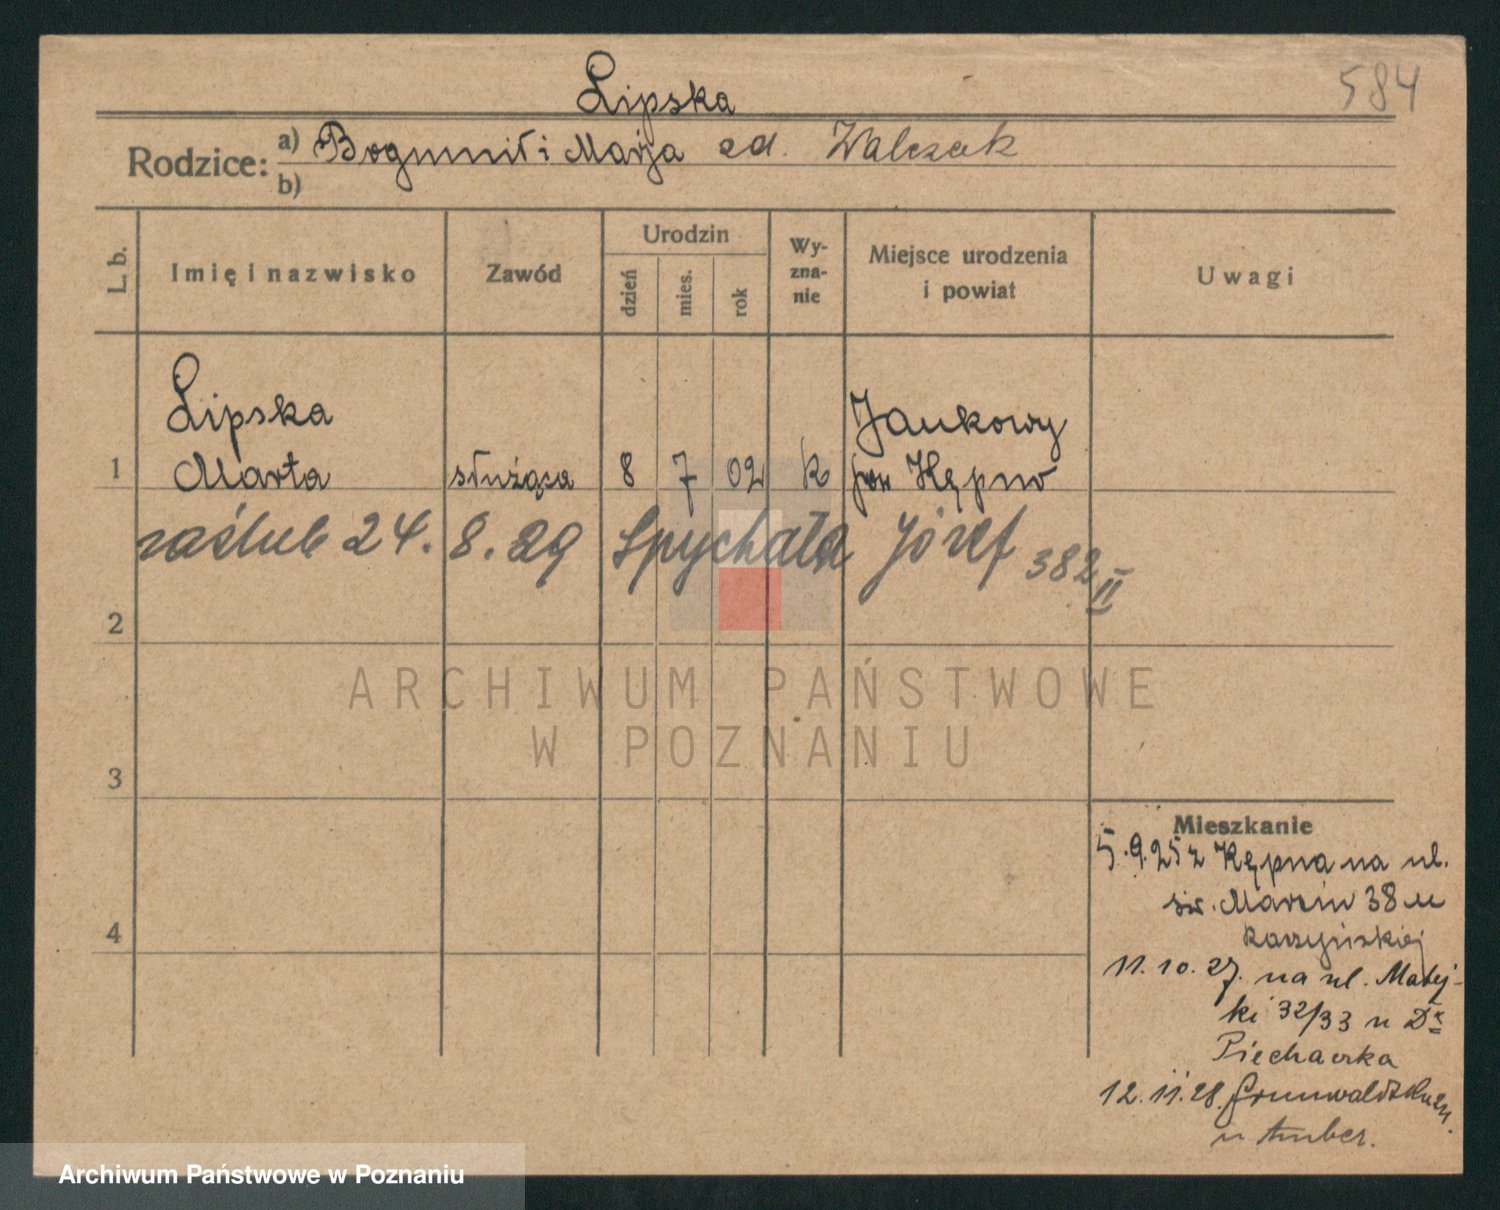 584
Lipska
Rodzice: a) Bogumił i Marja zd. Walczak
b)
L. b.
Imię i nazwisko
Zawód
Urodzin
dzień
mies.
rok
Wy-
zna-
nie
Miejsce urodzenia
i powiat
Uwagi
Lipska
Jankowy
1 Marta służąca 8 7 02 k pow Kępno
zaślub 24. 8. 29 Spychała Józef 382 II
2
ARCHIWUM PAŃSTWOWE
W POZNANIU
3
Mieszkanie
5.9.25 z Kępna na ul.
św. Marcin 38 u
4
11.10.27. na ul. Matej-
ki 32/33 u Dr
Piechacka
12.11.28.
u
Archiwum Państwowe w Poznaniu